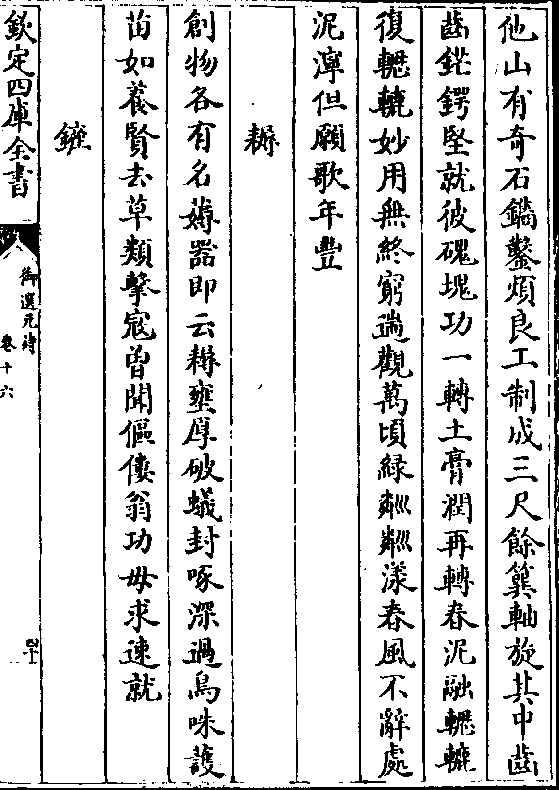 他山有奇石鐫鑿煩良工制成三尺餘簨軸旋其中齒
齒鋩鍔堅就彼磈塊功一轉土膏潤再轉春泥融轣轆
復轣轆妙用無終窮遄觀萬頃綠粼粼漾春風不辭處
泥濘但願歌年豐
耨
創物各有名薅器即云耨壅厚破蟻封啄深過鳥咮護
苗如養賢去草類擊寇曾聞傴僂翁功毋求速就
鏟
欽定四庫全書
御選元詩
卷十六
四十